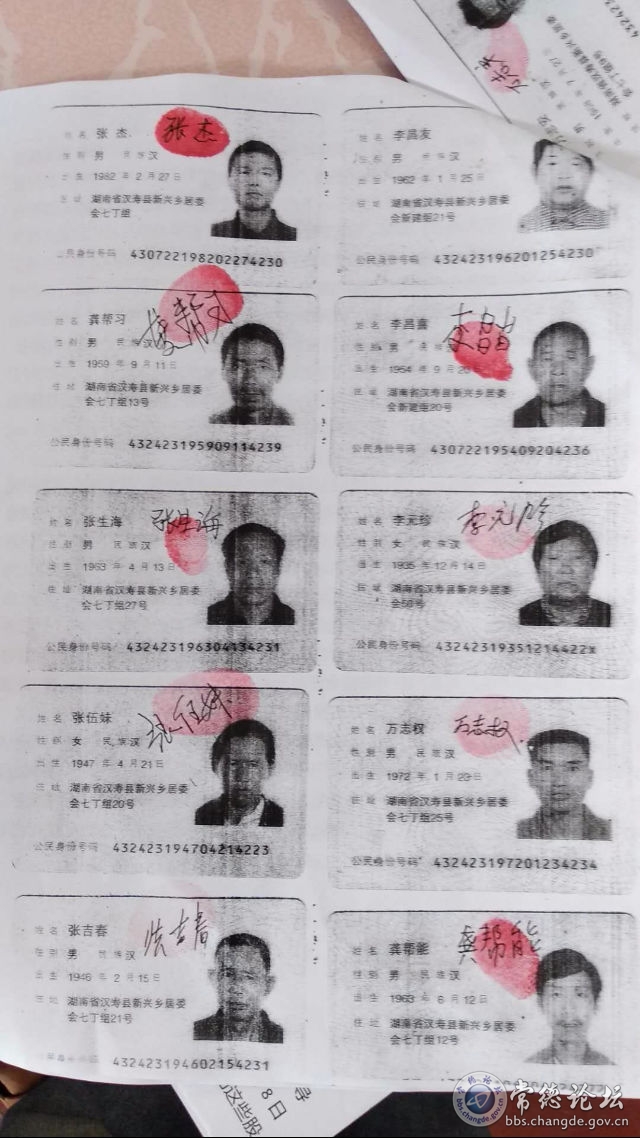 姓名 张杰 张杰
性别 男 民族 汉
出生 1982 年 2 月 27 日
住址 湖南省汉寿县新兴乡居委
会七丁组
公民身份号码 430722198202274230
姓名 李昌友
性别 男 民族 汉
出生 1962 年 1 月 25 日
住址 湖南省汉寿县新兴乡居委
会新建组21号
公民身份号码 432423196201254230
姓名 龚帮习
性别 男 民族 汉
出生 1959 年 9 月 11 日
住址 湖南省汉寿县新兴乡居委
会七丁组13号
公民身份号码 432423195909114239
姓名 李昌喜
性别 男 民族 汉
出生 1954 年 9 月
住址 湖南省汉寿县新兴乡居委
会新建组20号
公民身份号码 430722195409204236
姓名 张生海 张生海
性别 男 民族 汉
出生 1963 年 4 月 13 日
住址 湖南省汉寿县新兴乡居委
会七丁组27号
公民身份号码 432423196304134231
姓名 李元珍
性别 女 民族 汉
出生 1935 年 12 月 14 日
住址 湖南省汉寿县新兴乡居委
公民身份号码 43242319351214422x
姓名 张伍妹 张伍妹
性别 女 民族 汉
出生 1947 年 4 月 21 日
住址 湖南省汉寿县新兴乡居委
会七丁组20号
公民身份号码 432423194704214223
姓名 万志权 万志权
性别 男 民族 汉
出生 1972 年 1 月 23 日
住址 湖南省汉寿县新兴乡居委
会七丁组25号
公民身份号码 432423197201234234
姓名 张吉春 张吉春
性别 男 民族 汉
出生 1946 年 2 月 15 日
住址 湖南省汉寿县新兴乡居委
会七丁组21号
432423194602154231
姓名 龚帮能 龚帮能
性别 男 民族 汉
出生 1963 年 6 月 12 日
住址 湖南省汉寿县新兴乡居委
会七丁组12号
8日
这些股
常德论坛
bbs.changde.gov.cn